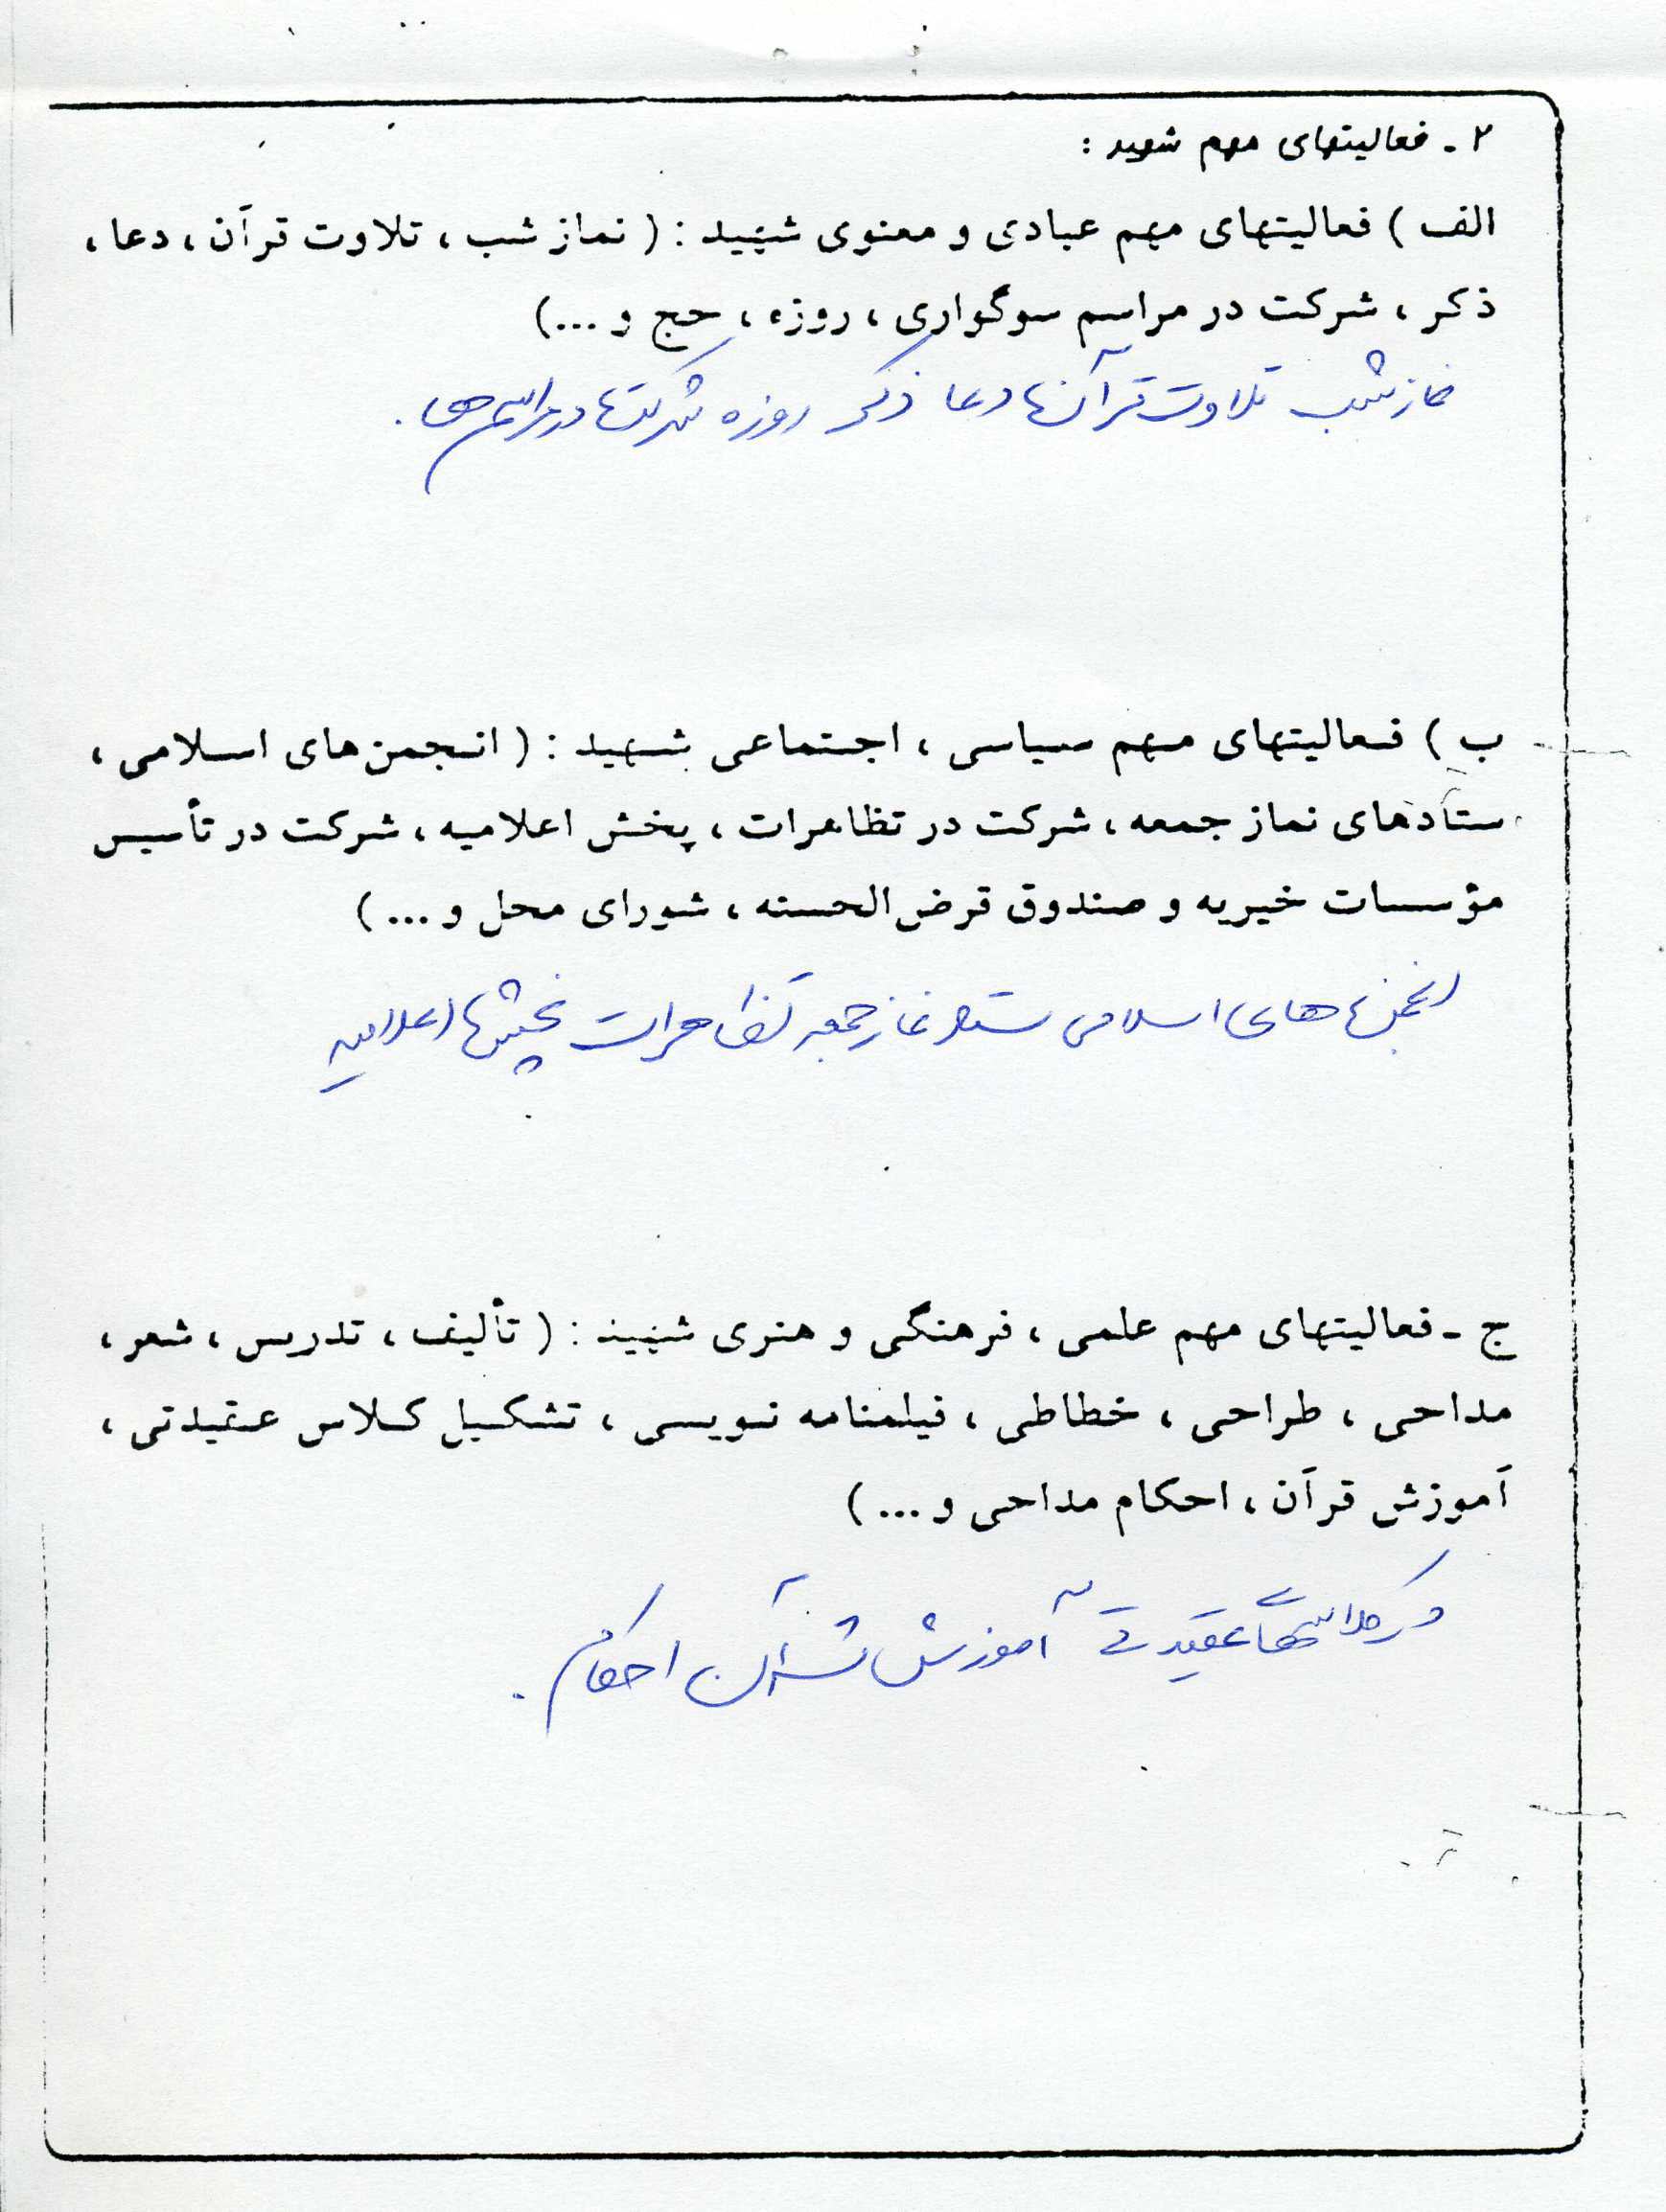 ۲ - فعالیتهای مهم شهید :
الف ) فعالیتهای مهم عبادی و معنوی شهید : ( نماز شب ، تلاوت قرآن ، دعا ،
ذکر ، شرکت در مراسم سوگواری ، روزه ، حج و ...)
نماز شب تلاوت قرآن دعا ذکر روزه شرکت در مراسم ها .
ب ) فعالیتهای مهم سیاسی ، اجتماعی شهید : ( انجمن های اسلامی ،
ستادهای نماز جمعه ، شرکت در تظاهرات ، پخش اعلامیه ، شرکت در تأسیس
مؤسسات خیریه و صندوق قرض الحسنه ، شورای محل و ... )
انجمن های اسلامی ستاد نماز جمعه تظاهرات پخش اعلامیه
ج - فعالیتهای مهم علمی ، فرهنگی و هنری شهید : ( تألیف ، تدریس ، شعر ،
مداحی ، طراحی ، خطاطی ، فیلمنامه نویسی ، تشکیل کلاس عقیدتی ،
آموزش قرآن ، احکام مداحی و ... )
در کلاسهای عقیدتی آموزش قرآن احکام .